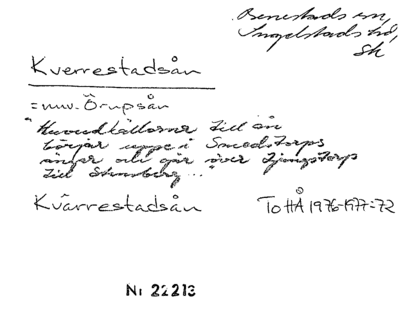 Benestads sn,
Ingelstads hd,
Sk
Kverrestadsån
= nuv. Örupsån
"Huvudkällorna till ån
börjar uppe i Smedstorps
ängar och går över Ljungstorp
till Stensberg ..."
Kvärrestadsån ToHÅ 1976-1977:72
Nr 22213